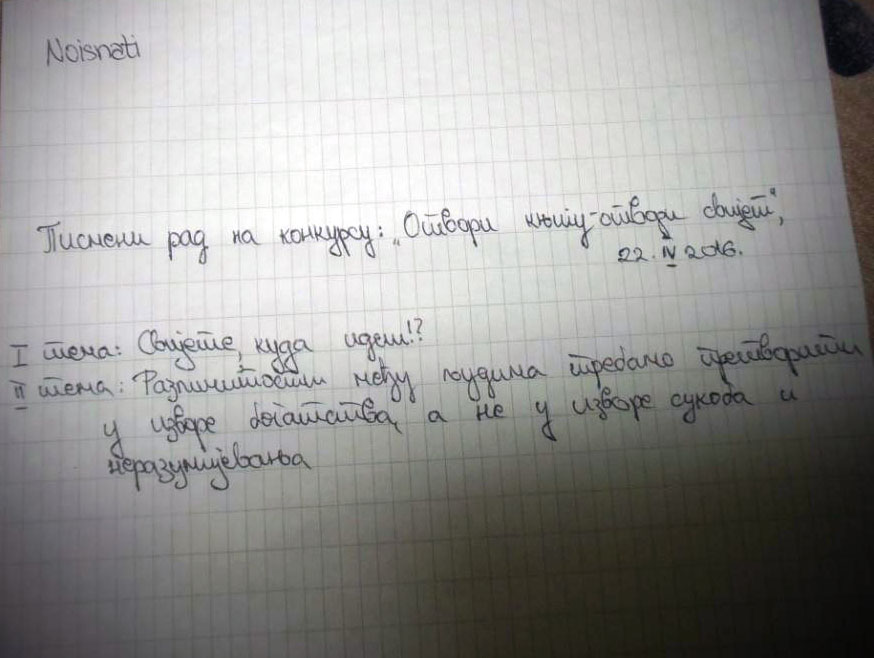 Noisnati
Писмени рад на конкурсу: „Отвори књигу-отвори свијет“,
22. IV 2016.
I тема: Свијете, куда идеш!?
II тема: Различитости међу људима требамо претворити
у изворе богатства, а не у изворе сукоба и
неразумијевања